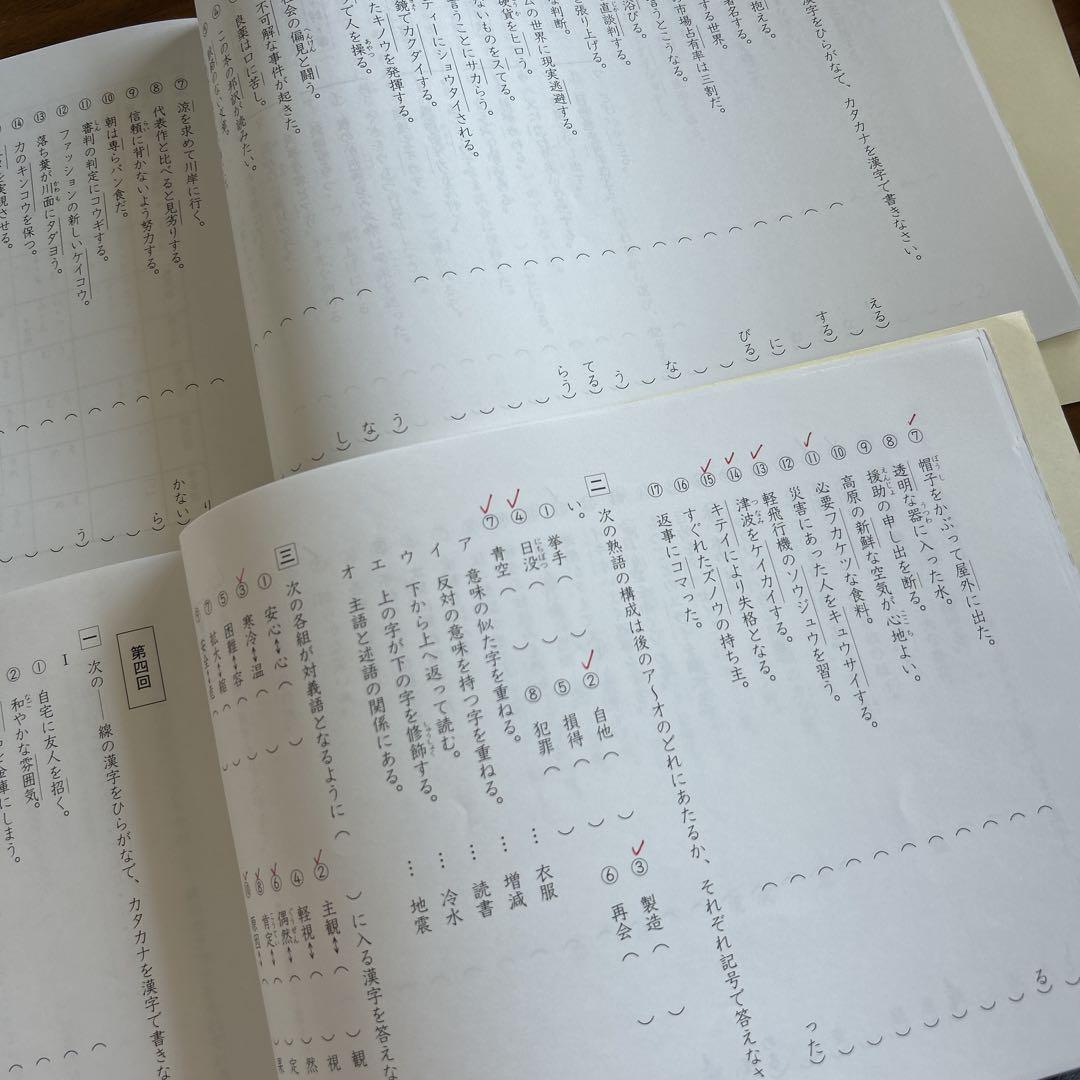 漢字をひらがなで、カタカナを漢字で書きなさい。
抱える。
する世界。
市場占有率は三割だ。
言うとこうなる。
浴びる。
直談判する。
を張り上げる。
な判断。
ムの世界に現実逃避する。
硬貨をヒロう。
ないものをステる。
言うことにサカらう。
ティーにショウタイされる。
鏡でカクダイする。
たキノウを発揮する。
で人を操る。
あやつ
社会の偏見と闘う。
へんけん
不可解な事件が起きた。
良薬は口に苦し。
この本の邦訳が読みたい。
える）
する
に
びる
な
う
てる
らう
う
な
し
⑦ 涼を求めて川岸に行く。
⑧ 代表作と比べると見劣りする。
⑨ 信頼に背かないよう努力する。
らい
⑩ 朝は専らパン食だ。
⑪ 審判の判定にコウギする。
しん
⑫ ファッションの新しいケイコウ。
⑬ 落ち葉が川面にタダヨう。
かわも
⑭ 力のキンコウを保つ。
実現させる。
り
かない
ら
う
⑦ 帽子をかぶって屋外に出た。
ぼうし
⑧ 透明な器に入った水。
うつわ
⑨ 援助の申し出を断る。
えんじょ
⑩ 高原の新鮮な空気が心地よい。
ここち
⑪ 必要フカケツな食料。
⑫ 災害にあった人をキュウサイする。
⑬ 軽飛行機のソウジュウを習う。
⑭ 津波をケイカイする。
なみ
⑮ キテイにより失格となる。
⑯ すぐれたズノウの持ち主。
⑰ 返事にコマった。
る
った）
二 次の熟語の構成は後のア～オのどれにあたるか、それぞれ記号で答えなさ
い。
① 挙手（ ） ② 自他（ ） ③ 製造（ ）
④ 日没（ ） ⑤ 損得（ ） ⑥ 再会（ ）
にちぼつ
⑦ 青空（ ） ⑧ 犯罪（ ）
ア 意味の似た字を重ねる。 … 衣服
イ 反対の意味を持つ字を重ねる。 … 増減
ウ 下から上へ返って読む。 … 読書
エ 上の字が下の字を修飾する。 … 冷水
しゅうしょく
オ 主語と述語の関係にある。 … 地震
三 次の各組が対義語となるように（ ）に入る漢字を答えな
① 安心↔心（ ） ② 主観↔（ ）観
③ 寒冷↔温（ ） ④ 軽視↔（ ）視
⑤ 困難↔容（ ） ⑥ 偶然↔（ ）然
ぐうぜん
⑦ 拡大↔縮（ ） ⑧ 肯定↔（ ）定
こうてい
⑩ 原因↔ 果
第四回
一 次の──線の漢字をひらがなで、カタカナを漢字で書きな
I
① 自宅に友人を招く。
② 和やかな雰囲気。
なご
金庫にしまう。